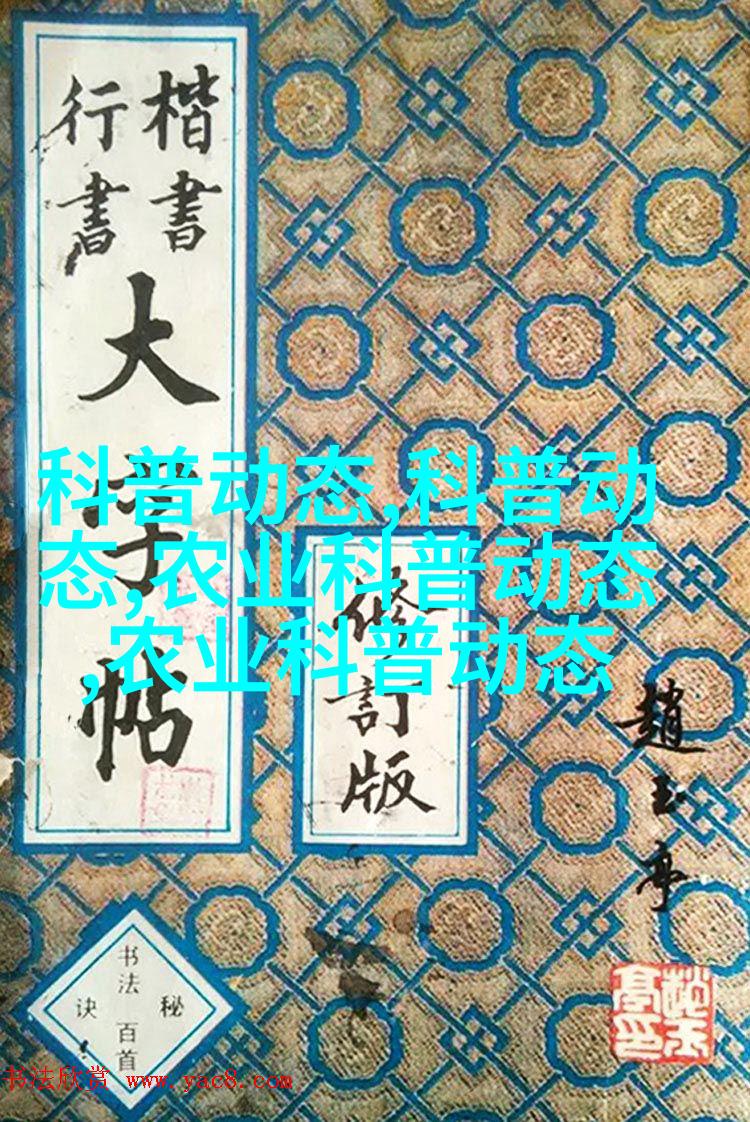 楷書
行書
大字帖
科普动态,科普动
态,农业科普动态
,农业科普动态
修訂版
趙玉亭
书法
百首
秘
诀
书法欣赏 www.yac8.com